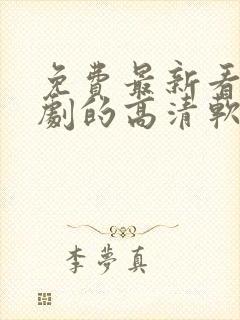 免費最新看
劇的高清軟
李夢真